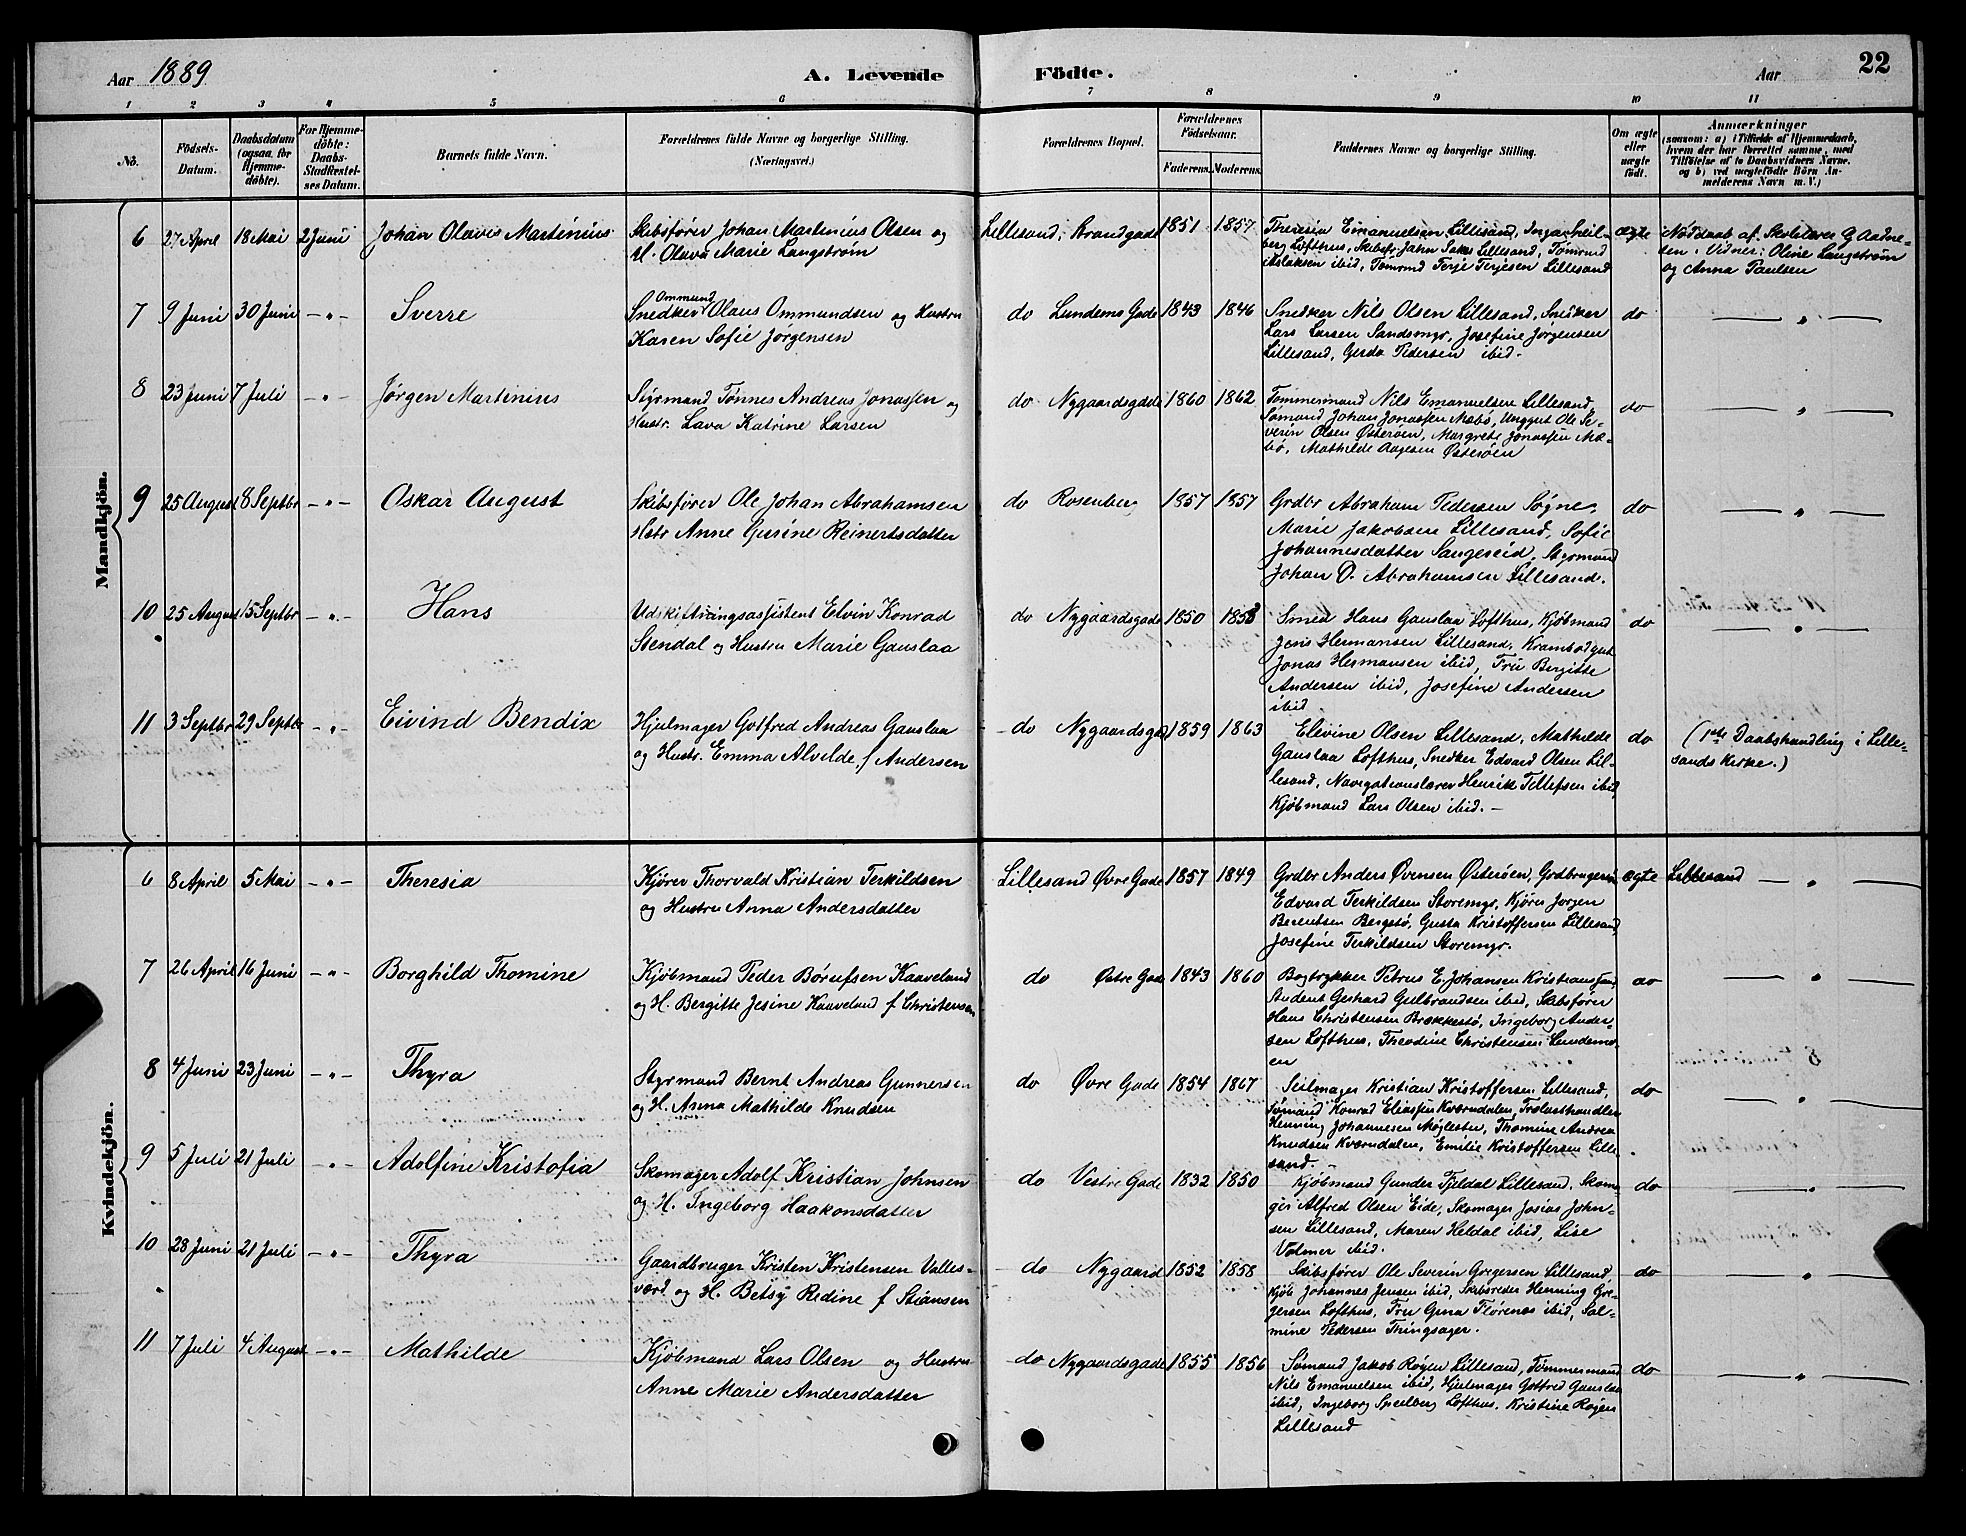 Aar 1889. A. Levende Födte. Aar 22
1 2 3 4 5 6 7 8 9 10 11
No. Födsels-Datum. Daabsdatum (ogsaa for Hjemme-döbte). For Hjemme-döbte: Daabs-Stadfæstel-ses Datum. Barnets fulde Navn. Forældrenes fulde Navne og borgerlige Stilling. (Næringsvei.) Forældrenes Bopæl. Forældrenes Födselsaar. Faderens. Moderens. Faddernes Navne og borgerlige Stilling. Om ægte eller uægte födt. Anmærkninger
(saasom: a) i Tilfælde af Hjemmedaab,
hvem der har forrettet samme, med
Tilföielse af to Daabsvidners Navne.
og b) ved uægtefödte Börn An-
melderens Navn m. V.)
Mandkjön.
6 27 April 18 Mai 2 Juni Johan Olavis Martinius
Skibsfører Johan Martinius Olsen og
H. Olava Marie Langstrøm
Lillesand, Strandgade 1851 1857
Theresia Emanuelsen Lillesand, Inga
Lofthus, Skibsfr. Lillesand, Tømrmd
Aslaksen ibid, Tømrmd Terje Terjesen Lillesand
ægte
Nøddaab af Skolelærer G Aadne-
sen. Vidner: Oline Langstrøm
og Anna Paulsen
7 9 Juni 30 Juni - " - Sverre
Ommund
Snedker Olaus Ommundsen og Hustru
Karen Sofie Jørgensen
do Lundemo Gade 1843 1846
Snedker Nils Olsen Lillesand, Snedker
Lars Larsen Sandsmyr, Josefine Jørgensen
Lillesand, Gerda Pedersen ibid.
do — " —
8 23 Juni 7 Juli - " - Jørgen Martinius
Styrmand Tønnes Andreas Jonassen og
Hustr. Lava Katrine Larsen
do Nygaardsgade 1860 1862
Tømmermand Nils Emanuelsen Lillesand,
Sømand Johan Jonassen Mæbø, Unggut Ole Se-
verin Olsen Østerøen, Margrete Jonassen Mæ-
bø, Mathilde Aagesen Østerøen
do — " —
9 25 August 8 Septbr - " - Oskar August
Skibsfører Ole Johan Abrahamsen
Hstr Anne Gurine Reinertsdatter
do Rosenberg 1857 1857
Grdbr Abraham Pedersen Søgne,
Marie Jakobsen Lillesand, Sofie
Johannesdatter Sangereid, Styrmand
Johan O. Abrahamsen Lillesand.
do — " —
10 25 August 15 Septbr - " - Hans
Udskiftningsassistent Elvin Konrad
Stendal og Hustru Marie Gauslaa
do Nygaardsgade 1850 1858
Smed Hans Gauslaa Lofthus, Kjøbmand
Jens Hermansen Lillesand, Krambodgut
Jonas Hermansen ibid, Fru Bergitte
Andersen ibid, Josefine Andersen
ibid
do — " —
11 3 Septbr 29 Septbr - " - Eivind Bendix
Hjulmager Gotfred Andreas Gauslaa
og Hustr. Emma Alvilde f Andersen
do Nygaardsgd. 1859 1863
Elevine Olsen Lillesand, Mathilde
Gauslaa Lofthus, Snedker Edvard Olsen Lil-
lesand, Navigationslærer Henrik Tellefsen ibid,
Kjøbmand Lars Olsen ibid. -
do
(1ste Daabshandling i Lille-
sands Kirke.)
Kvindekjön.
6 8 April 5 Mai - " - Theresia
Kjører Thorvald Kristian Terkildsen
og Hustru Anna Andersdatter
Lillesand Øvre Gade 1857 1849
Grdbr Anders Øvensen Østerøen, Grdbrugerin
Edvard Terkildsen Storemyr, Kjører Jørgen
Berentsen Bergstø, Gusta Kristoffersen Lillesand,
Josefine Terkildsen Storemyr.
ægte Lillesand — " —
7 26 April 16 Juni - " - Borghild Thomine
Kjøbmand Peder Børufsen Kaaveland
og H. Bergitte Jesine Kaaveland f Christensen
do Østre Gade 1843 1860
Bogtrykker Petrus E. Johansen Kristianssand,
Student Gerhard Gulbrandsen ibid, Skibsfører
Hans Christensen Brækkestø, Ingeborg Ander-
sen Lofthus, Theodine Christensen Lundemo-
en
do — " —
8 4 Juni 23 Juni - " - Thyra
Styrmand Bernt Andreas Gunnersen
og H. Anna Mathilde Knudsen
do Øvre Gade 1854 1867
Seilmager Kristian Kristoffersen Lillesand,
Sømand Konrad Eliassen Kværndalen, Trælasthandler
Henning Johannesen Møglestu, Thomine Andrea
Knudsen Kværndalen, Emilie Kristoffersen Lille-
sand.
do — " —
9 5 Juli 21 Juli - " - Adolfine Kristofia
Skomager Adolf Kristian Johnsen
og H. Ingeborg Haakonsdatter
do Vestre Gade 1832 1850
Kjøbmand Gunder Fjeldal Lillesand, Skoma-
ger Alfred Olsen Eide, Skomager Josias John-
sen Lillesand, Maren Heldal ibid, Lise
Volmer ibid.
do — " —
10 28 Juni 21 Juli - " - Thyra
Gaardbruger Kristen Kristensen Valles-
værd og H. Betsy Redine f Stiansen
do Nygaard 1852 1858
Skibsfører Ole Severin Gregersen Lillesand,
Kjøb Johannes Jensen ibid, Skibsreder Henning Gre-
gersen Lofthus, Fru Gina Florenæs ibid, Sal-
mine Pedersen Thingsager.
do — " —
11 7 Juli 4 August - " - Mathilde
Kjøbmand Lars Olsen og Hustru
Anne Marie Andersdatter
do Nygaardsgade 1855 1856
Sømand Jakob Røgen Lillesand, Tømmermand
Nils Emanuelsen ibid, Hjulmager Gotfred Gauslaa
ibid, Ingeborg Speilberg Lofthus, Kristine Røgen
Lillesand
do — " —